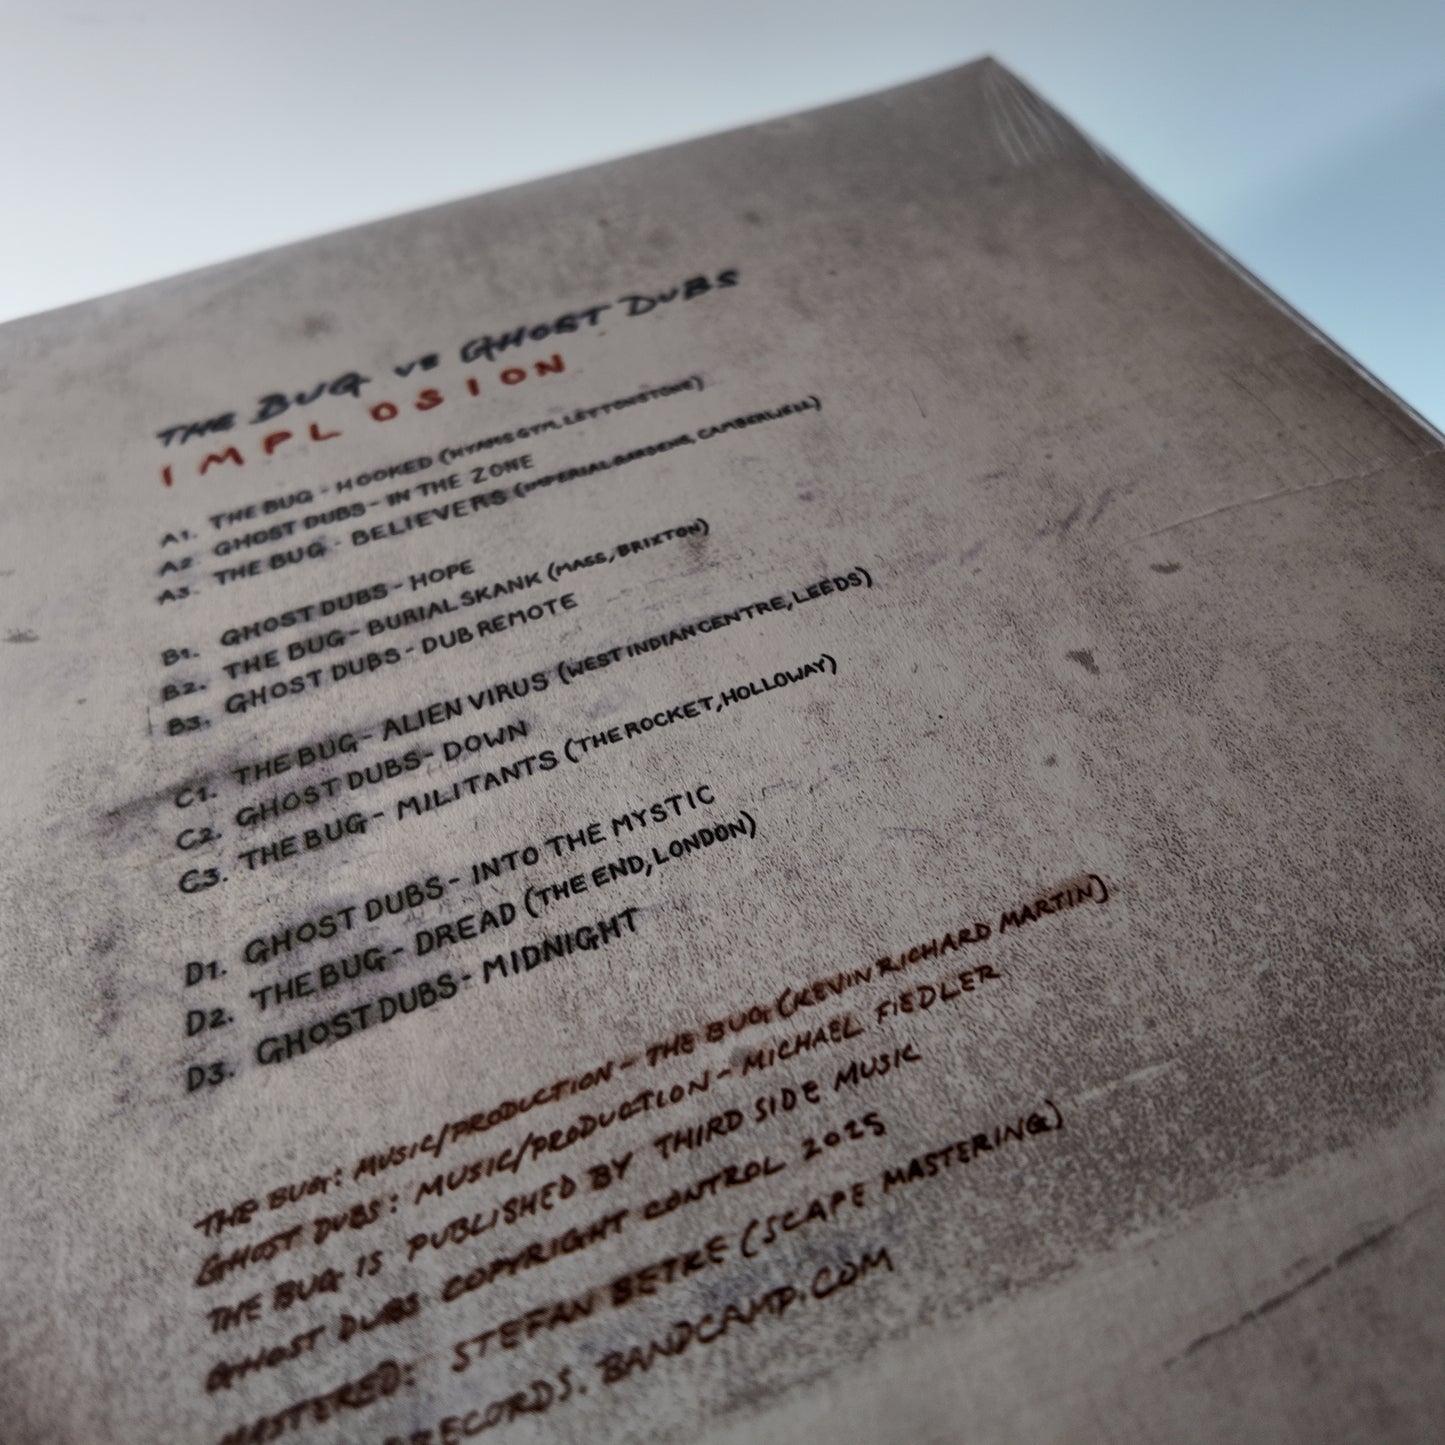 THE BUG VS GHOST DUBS
IMPLOSION
A1. THE BUG - HOOKED (HYAMS GYM, LEYTONSTONE)
A2 GHOST DUBS - IN THE ZONE
A3. THE BUG - BELIEVERS (IMPERIAL GARDENS, CAMBERWELL)
B1. GHOST DUBS - HOPE
B2. THE BUG - BURIAL SKANK (MASS, BRIXTON)
B3. GHOST DUBS - DUB REMOTE
C1. THE BUG - ALIEN VIRUS (WEST INDIAN CENTRE, LEEDS)
C2. GHOST DUBS - DOWN
C3. THE BUG - MILITANTS (THE ROCKET, HOLLOWAY)
D1. GHOST DUBS - INTO THE MYSTIC
D2. THE BUG - DREAD (THE END, LONDON)
D3. GHOST DUBS - MIDNIGHT
THE BUG: MUSIC/PRODUCTION - THE BUG (KEVIN RICHARD MARTIN)
GHOST DUBS: MUSIC/PRODUCTION - MICHAEL FIEDLER
THE BUG IS PUBLISHED BY THIRD SIDE MUSIC
GHOST DUBS COPYRIGHT CONTROL 2025
MASTERED: STEFAN BETKE (SCAPE MASTERING)
RECORDS. BANDCAMP.COM